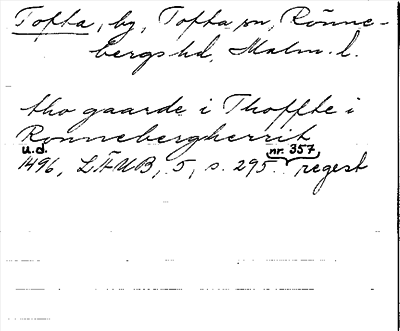 Tofta, by, Tofta sn, Rönne-
bergs hd, Malm. l.
tho gaarde i Thoffte i
Rønnebergherrit
u.d.
nr. 357
1496, LÄUB, 5, s. 295. regest